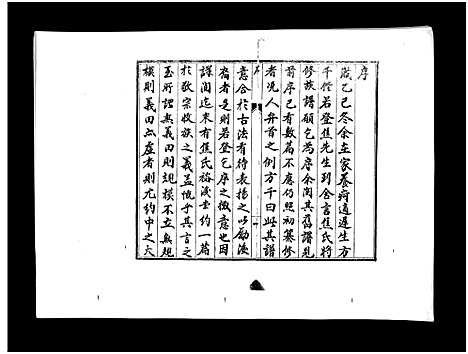 序
歲乙巳冬余在家養疴適遲生方
千偕若登焦先生到舍言焦氏將
修族譜願乞為序余閱其舊譜見
前序已有數篇不應仍照初纂修
者況人弁首之例方千曰此其譜
意合於古法有待表揚之以勵後
裔者是則若登乞序之微意也因
譯閱迄末有焦氏裕後堂約一篇
於敬宗收族之義益恍乎其言之
至所謂無義田則規模不立無規
模則義田亦虛者則尤約中之大